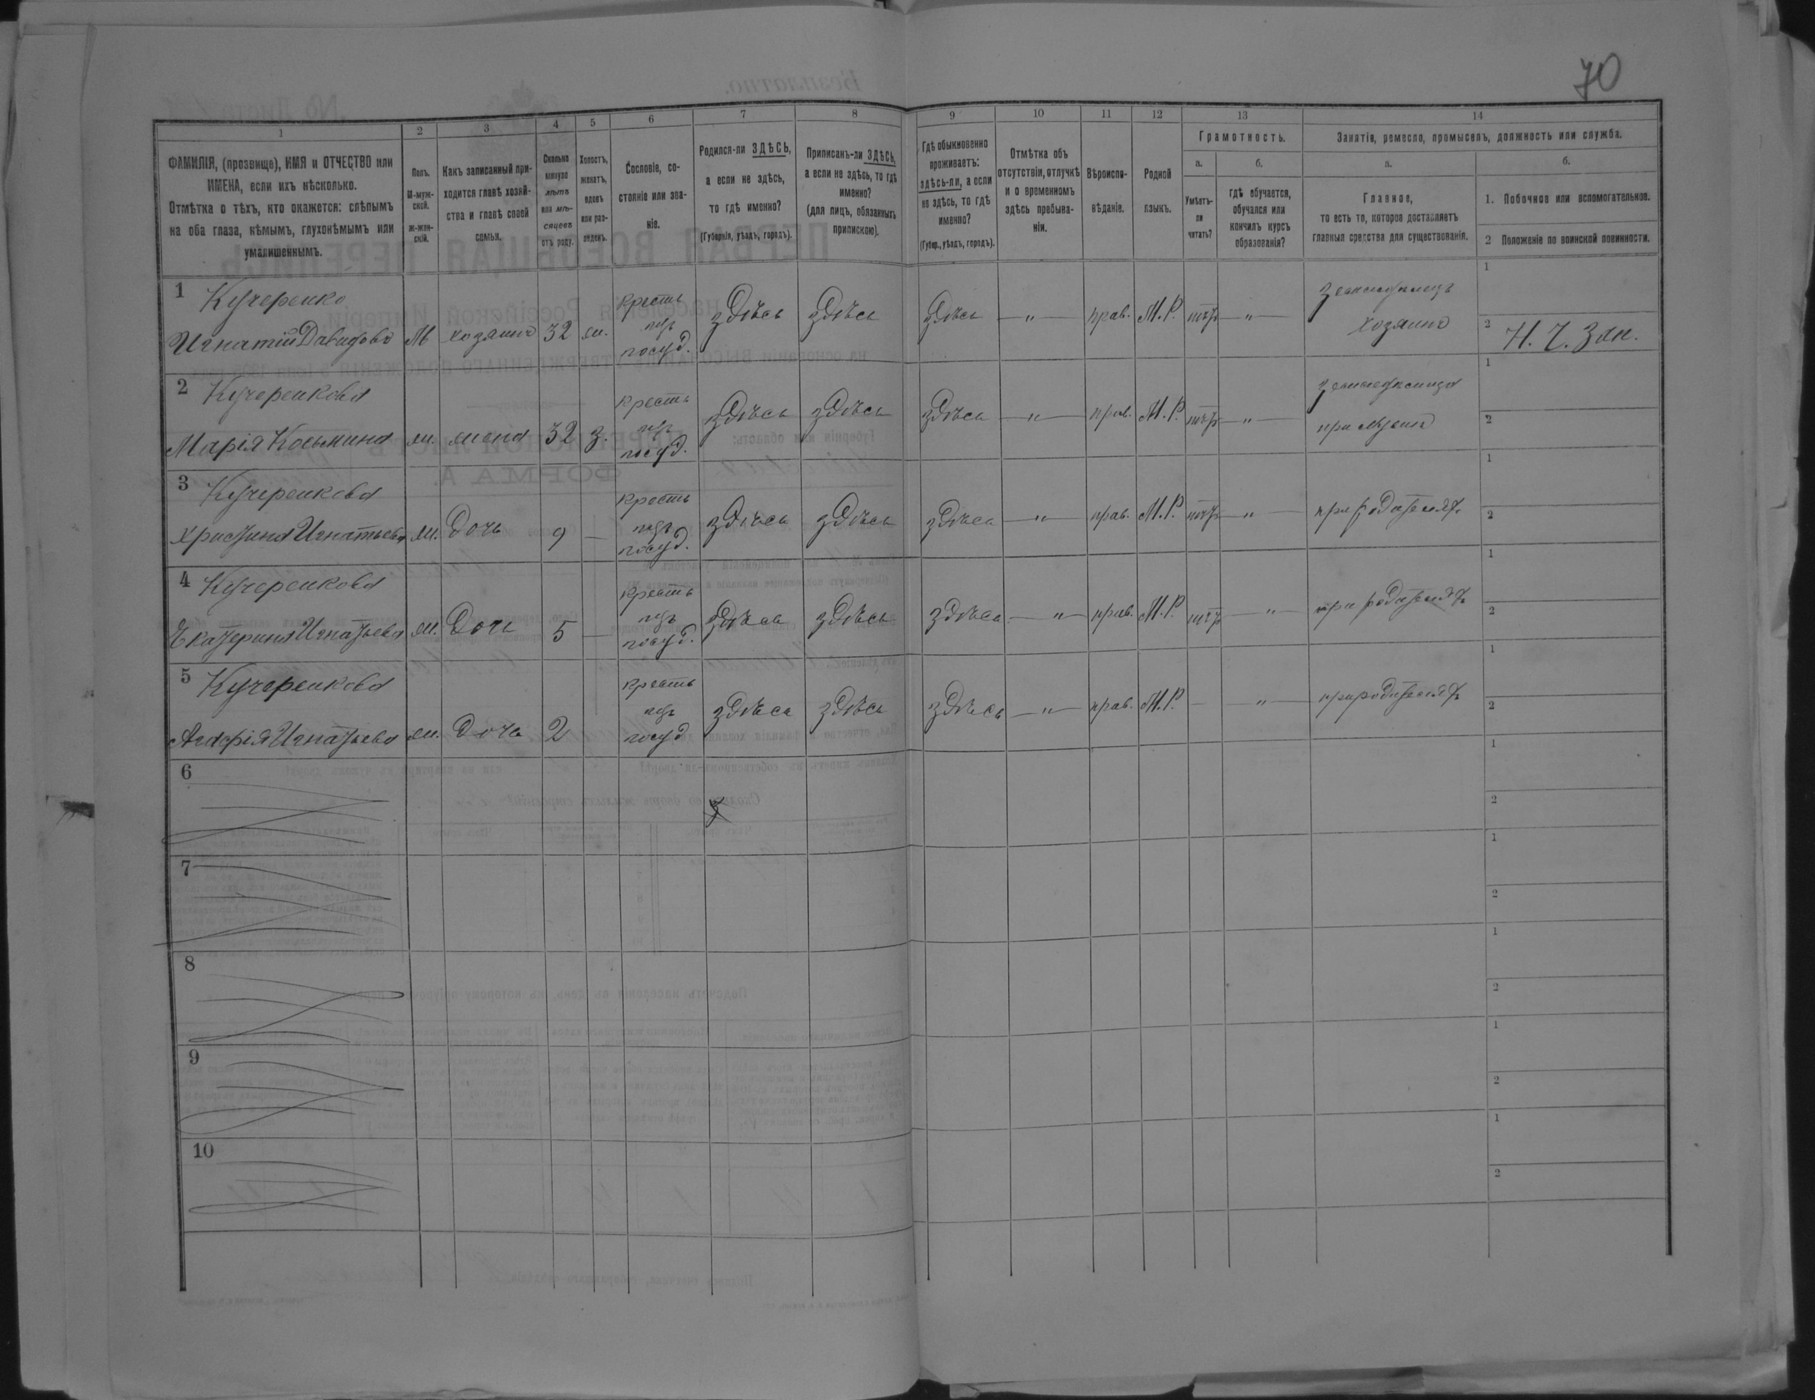 70
1 2 3 4 5 6 7 8 9 10 11 12 13 14
ФАМИЛІЯ, (прозвище), ИМЯ и ОТЧЕСТВО или ИМЕНА, если ихъ нѣсколько.
Отмѣтка о тѣхъ, кто окажется: слѣпымъ на оба глаза, нѣмымъ, глухонѣмымъ или умалишеннымъ.
Полъ.
М-муж-
ской.
Ж-жен-
скій.
Какъ записанный при-
ходится главѣ хозяй-
ства и главѣ своей
семьи.
Сколько
минуло
лѣтъ
или мѣ-
сяцевъ
отъ роду.
Холостъ,
женатъ,
вдовъ
или раз-
веденъ.
Сословіе, со-
стояніе или зва-
ніе.
Родился-ли ЗДѢСЬ,
а если не здѣсь,
то гдѣ именно?
(Губернія, уѣздъ, городъ).
Приписанъ-ли ЗДѢСЬ,
а если не здѣсь, то гдѣ
именно?
(для лицъ, обязанныхъ
припискою).
Гдѣ обыкновенно
проживаетъ:
здѣсь-ли, а если
не здѣсь, то гдѣ
именно?
(Губер., уѣздъ, городъ).
Отмѣтка объ
отсутствіи, отлучкѣ
и о временномъ
здѣсь пребыва-
ніи.
Вѣроиспо-
вѣданіе.
Родной
языкъ.
Грамотность.
а. б.
Умѣетъ-
ли
читать?
гдѣ обучается,
обучался или
кончилъ курсъ
образованія?
Занятія, ремесло, промыселъ, должность или служба.
а. б.
Главное,
то есть то, которое доставляетъ
главныя средства для существованія.
1. Побочное или вспомогательное.
2 Положеніе по воинской повинности.
1 Кучеренко
Игнатій Давидовъ М хозяинъ 32 ж. крестьян. здѣсь здѣсь здѣсь — „ — прав. М.Р. нѣтъ — „ — земледѣлецъ хозяинъ
1
2 Н. Ч. Зап.
2 Кучеренкова
Марія Косьмина ж. жена 32 з. здѣсь здѣсь здѣсь — „ — прав. М.Р. нѣтъ — „ —
1
2
3 Кучеренкова
Христина Игнатьева ж. Дочь 9 — здѣсь здѣсь здѣсь — „ — прав. М.Р. нѣтъ — „ — при родителяхъ
1
2
4 Кучеренкова
Екатерина Игнатьева ж. Дочь 5 — здѣсь здѣсь здѣсь — „ — прав. М.Р. нѣтъ — „ — при родителяхъ
1
2
5 Кучеренкова
Игнатьева ж. Дочь 2 здѣсь здѣсь здѣсь — „ — прав. М.Р. — — „ — при родителяхъ
1
2
6
1
2
7
1
2
8
1
2
9
1
2
10
1
2